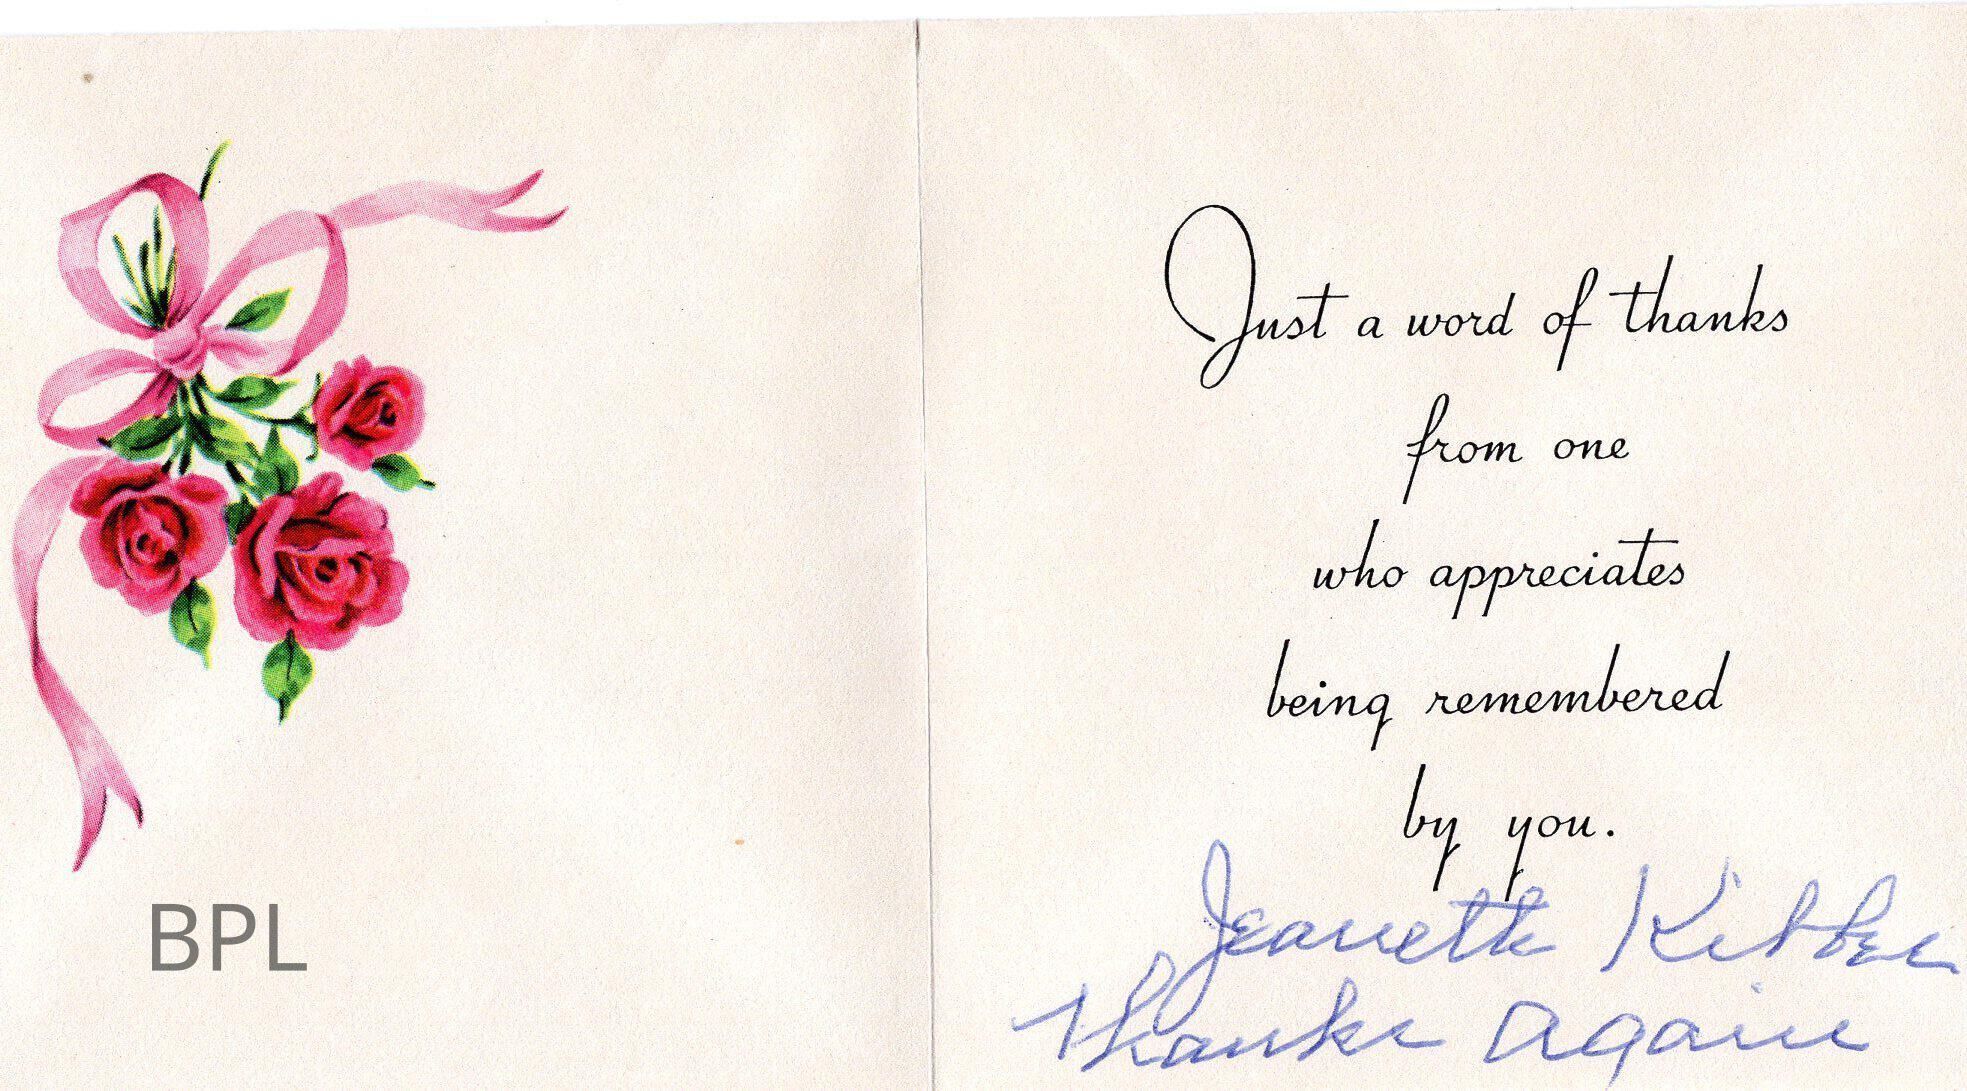 Just a word of thanks
from one
who appreciates
being remembered
by you.
Jeanette Kibbee
Thanks Again
BPL